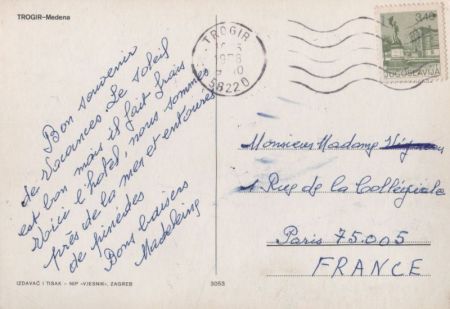 TROGIR-Medena
Bon souvenir
de Vacances. Le soleil
est bon mais il fait frais
Voici l'hotel, nous sommes
près de la mer et entourés
de pinèdes
Bons baisers
Madeleine
TROGIR
58220
3.40
JUGOSLAVIJA
Monsieur Madame
1 Rue de la Collégiale
Paris 75.005
FRANCE
IZDAVAČ I TISAK - NIP «VJESNIK», ZAGREB
3053